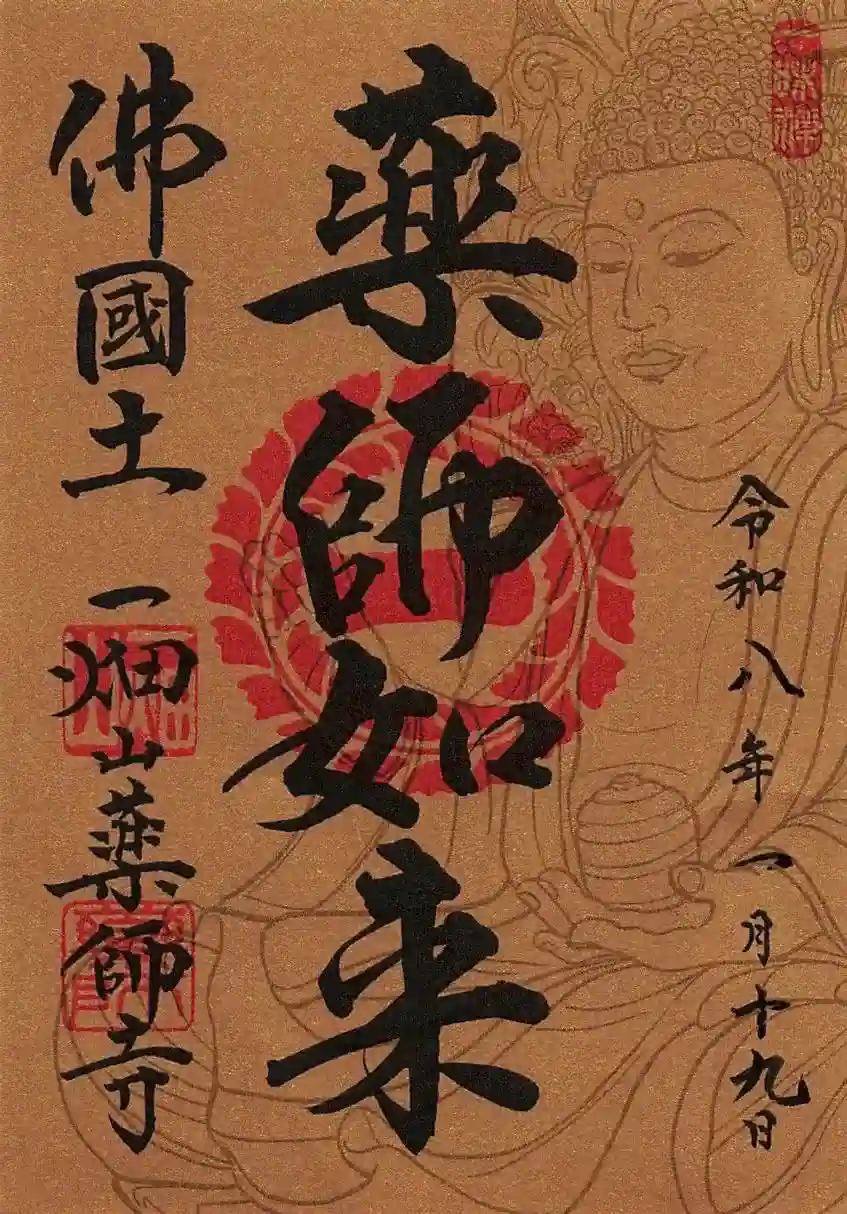 令和八年一月十九日
薬師如来
佛國土 一畑山薬師寺